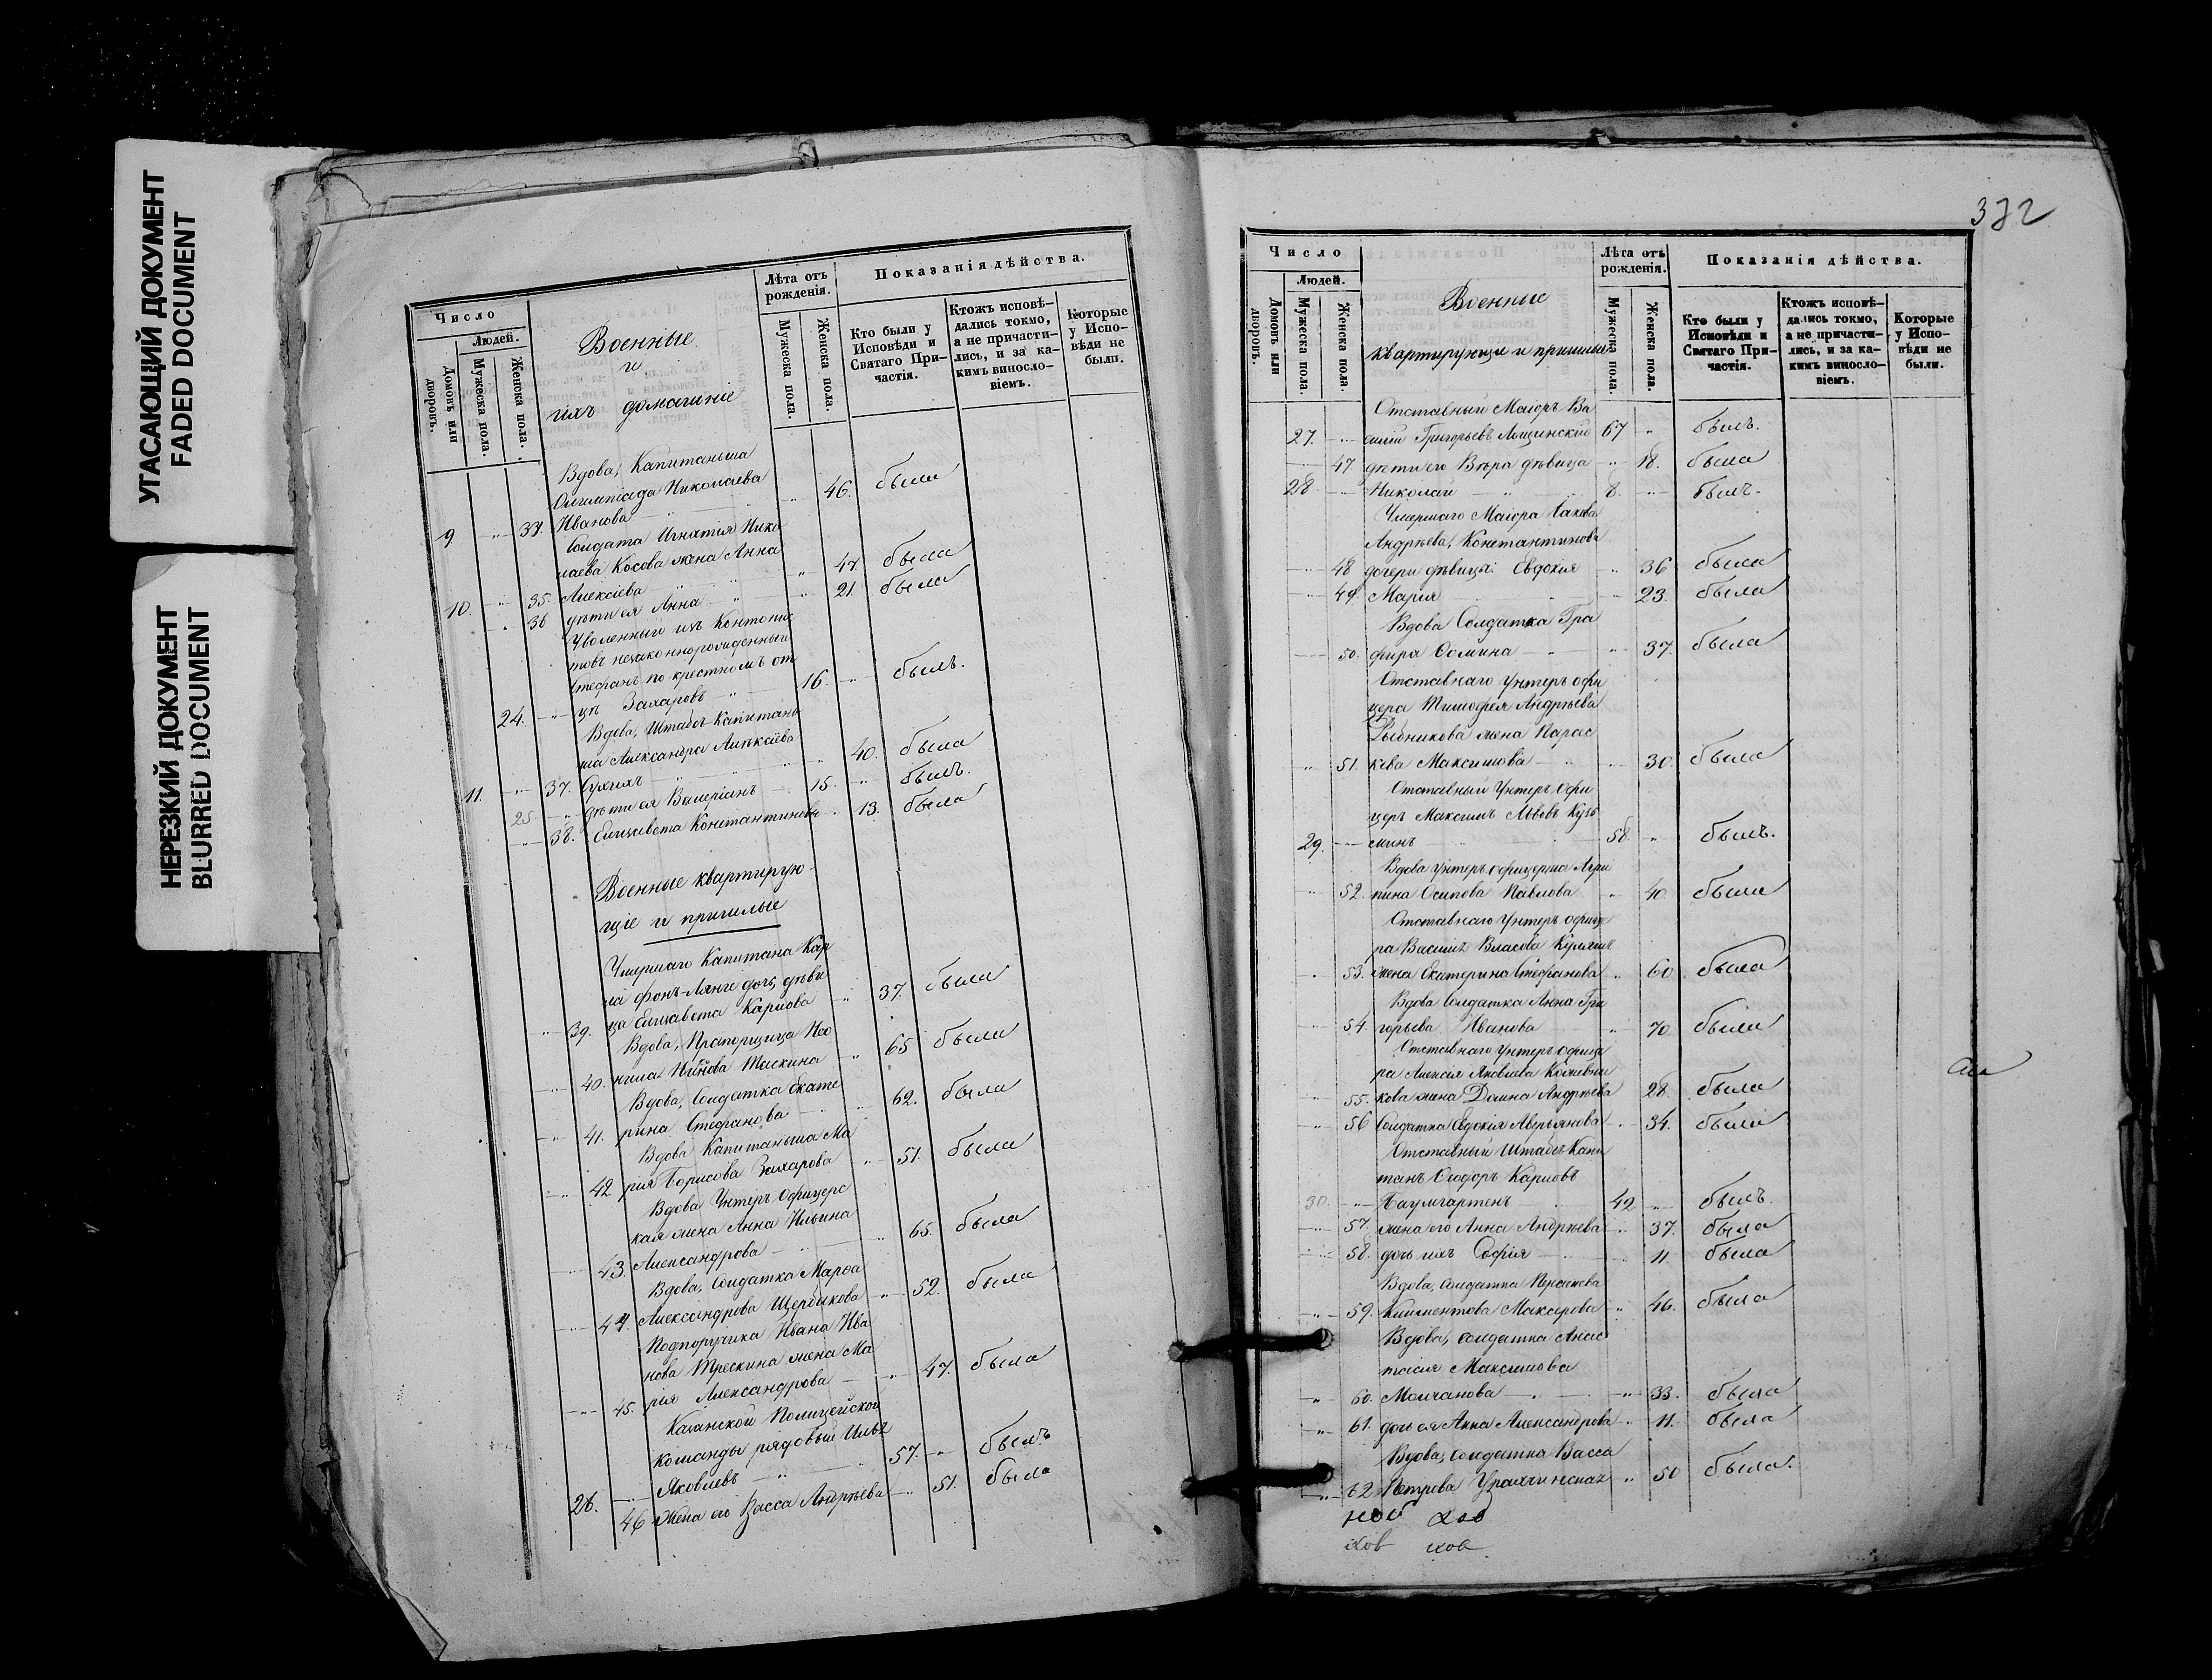 УГАСАЮЩИЙ ДОКУМЕНТ
FADED DOCUMENT
НЕРЕЗКИЙ ДОКУМЕНТ
BLURRED DOCUMENT
Число
Людей.
Домовъ или дворовъ.
Мужеска пола.
Женска пола.
Военные
и
ихъ домашніе
Лѣта отъ рожденія.
Мужеска пола.
Женска пола.
Показанія дѣйства.
Кто были у Исповѣди и Святаго Причастія.
Ктожъ исповѣдались токмо, а не причастились, и за какимъ винословіемъ.
Которые у Исповѣди не были.
Вдова, Капитанша
Олимпіада Николаева
9. 34. Иванова 46. была
Солдата Игнатія Нико
лаева Косова жена Анна
10. 35. Алексіева 47. была
36 дѣти ея Анна 21. была
Уволенный изъ Кантонис
товъ незаконнорожденный
Стефанъ по крестномъ от
24. цѣ Захаровъ 16. былъ.
Вдова, Штабсъ-Капитан
ша Александра Алексіева
11. 37. Сухихъ 40. была
25 дѣти ея Валеріанъ 15. былъ.
38. Елисавета Константинова 13. была
Военные квартирую-
щіе и пришлые
Умершаго Капитана Кар
ла фонъ-Ланге дочь дѣви
39. ца Елисавета Карлова 37. была
Вдова, Прапорщица
40. 65 была
Вдова, Солдатка Екате
41. рина Стефанова 62. была
Вдова Капитанша Ма
42 рія Борисова Захарова 51. была
Вдова Унтеръ Офицерс
кая жена Анна Ильина
43. Александрова 65. была
Вдова, Солдатка Марѳа
44. Александрова Щербакова 52. была
Подпоручика Ивана Ива
нова Трескина жена Ма
45. рія Александрова 47. была
Казанской Полицейской
команды рядовый Илья
26. Яковлевъ 57. былъ
46 Жена его Васса Андреева 51. была
372
Число
Людей.
Домовъ или дворовъ.
Мужеска пола.
Женска пола.
Военные
квартирующіе и пришлые
Лѣта отъ рожденія.
Мужеска пола.
Женска пола.
Показанія дѣйства.
Кто были у Исповѣди и Святаго Причастія.
Ктожъ исповѣдались токмо, а не причастились, и за какимъ винословіемъ.
Которые у Исповѣди не были.
Отставный Маіоръ Ва
27. силій Григорьевъ 67 былъ.
47. дѣти его Вѣра дѣвица 18. была
28. Николай 8. былъ.
Умершаго Маіора Іакова
Андреева, Константинова
48 дочери дѣвицы: Евдокія 36 была
49. Марія 23. была
Вдова Солдатка Гла
50. фира Ѳомина 37. была
Отставнаго Унтеръ офи
цера Тимофея Андреева
Рыбникова жена Парас
51. кева Максимова 30. была
Отставный Унтеръ Офи
церъ Максимъ Львовъ Кузь
29. минъ 58. былъ.
Вдова Унтеръ офицерша Агри
52. пина Осипова Павлова 40. была
Отставнаго Унтеръ офице
ра Василія Власова
53. жена Екатерина Стефанова 60. была
Вдова Солдатка Анна Гри
54. горьева Иванова 70. была
Отставнаго Унтеръ Офице
ра Алексія Яковлева Кожевни
55. кова жена Домна Андреева 28. была
56 Солдатка Евдокія Аверьянова 34. была
Отставный Штабсъ Капи
танъ Ѳеодоръ Карловъ
30. Баумгартенъ 42 былъ.
57. жена его Анна Андреева 37. была
58. дочь ихъ Софія 11. была
Вдова, Солдатка
59. Климентова Макарова 46. была
Вдова, Солдатка Анас
тасія Максимова
60. Молчанова 33. была
61. дочь ея Анна Александрова 11. была
Вдова, Солдатка Васса
62 Петрова 50 была.